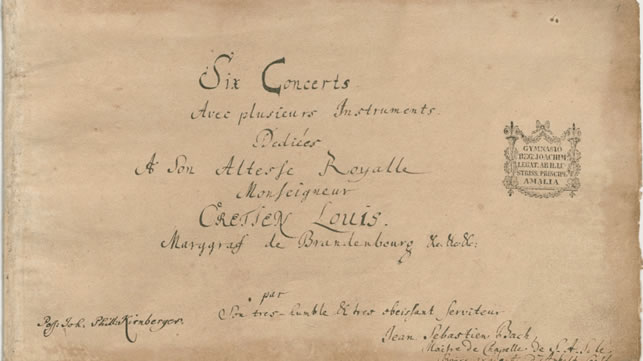 Six Concerts
Avec plusieurs Instruments.
Dediées
A Son Altesse Royalle
Monseigneur
CRETIEN LOUIS.
Marggraf de Brandenbourg &c.&c.&c:
par
Son tres-humble & tres obeissant serviteur
Jean Sebastien Bach,
Maitre de Chapelle de S. A. S. le
Poss: Joh. Phil. Kirnberger.
GYMNASIO
REG. JOACHIM.
LEGAT. AB ILLU
STRISS. PRINCIPE
AMALIA